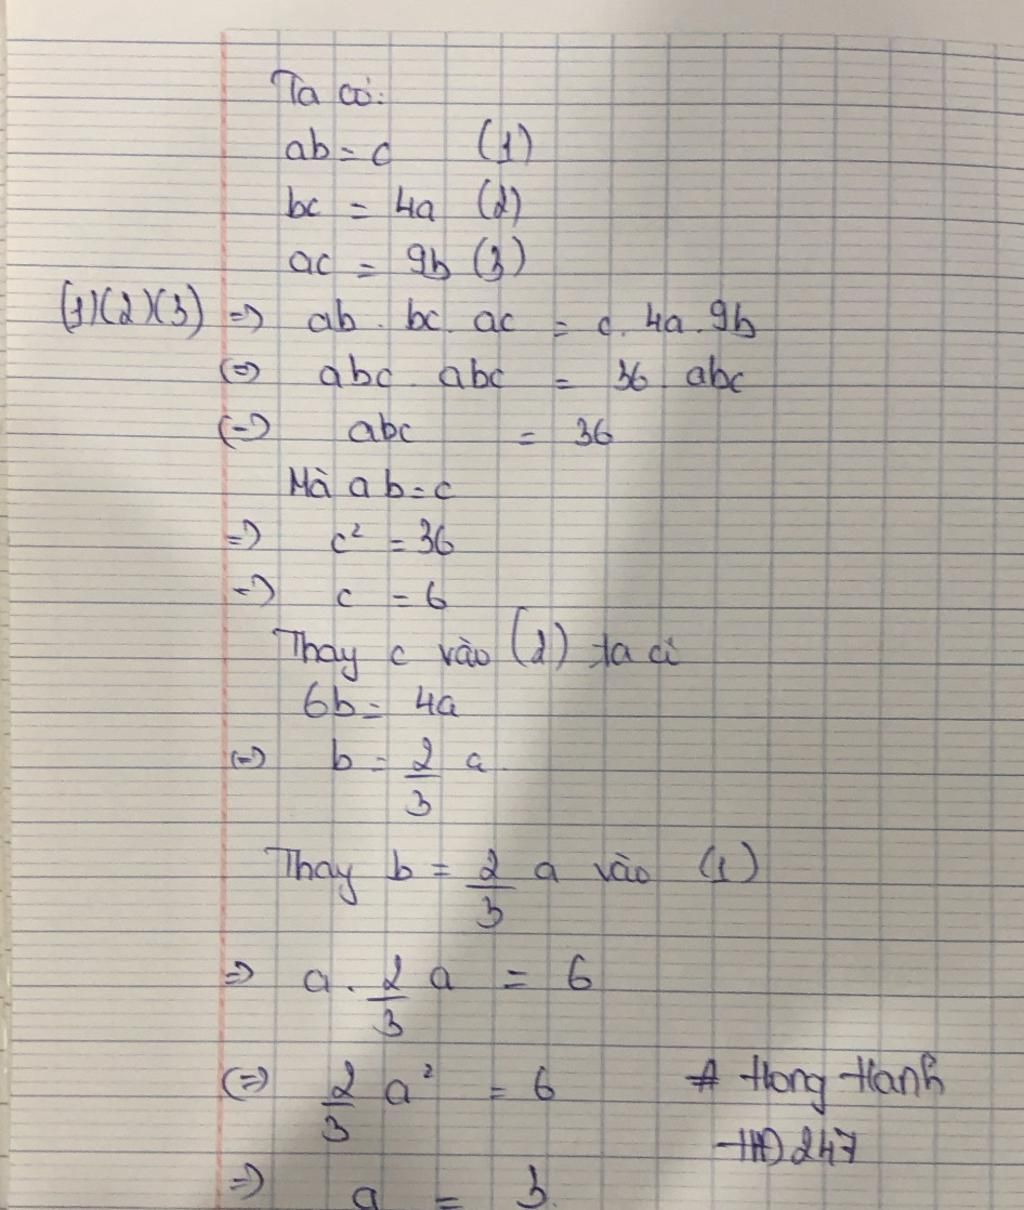 Ta có:
ab = c (1)
bc = 4a (2)
ac = 9b (3)
(1)(2)(3) => ab . bc . ac = c. 4a . 9b
(=) abc . abc = 36 abc
(=) abc = 36
Mà ab = c
=) c² = 36
=) c = 6
Thay c vào (2) ta có
6b = 4a
(=) b = 2/3 a.
Thay b = 2/3 a vào (1)
=> a . 2/3 a = 6
(=) 2/3 a² = 6
# Hong Hanh
HĐ 247
=) a = 3